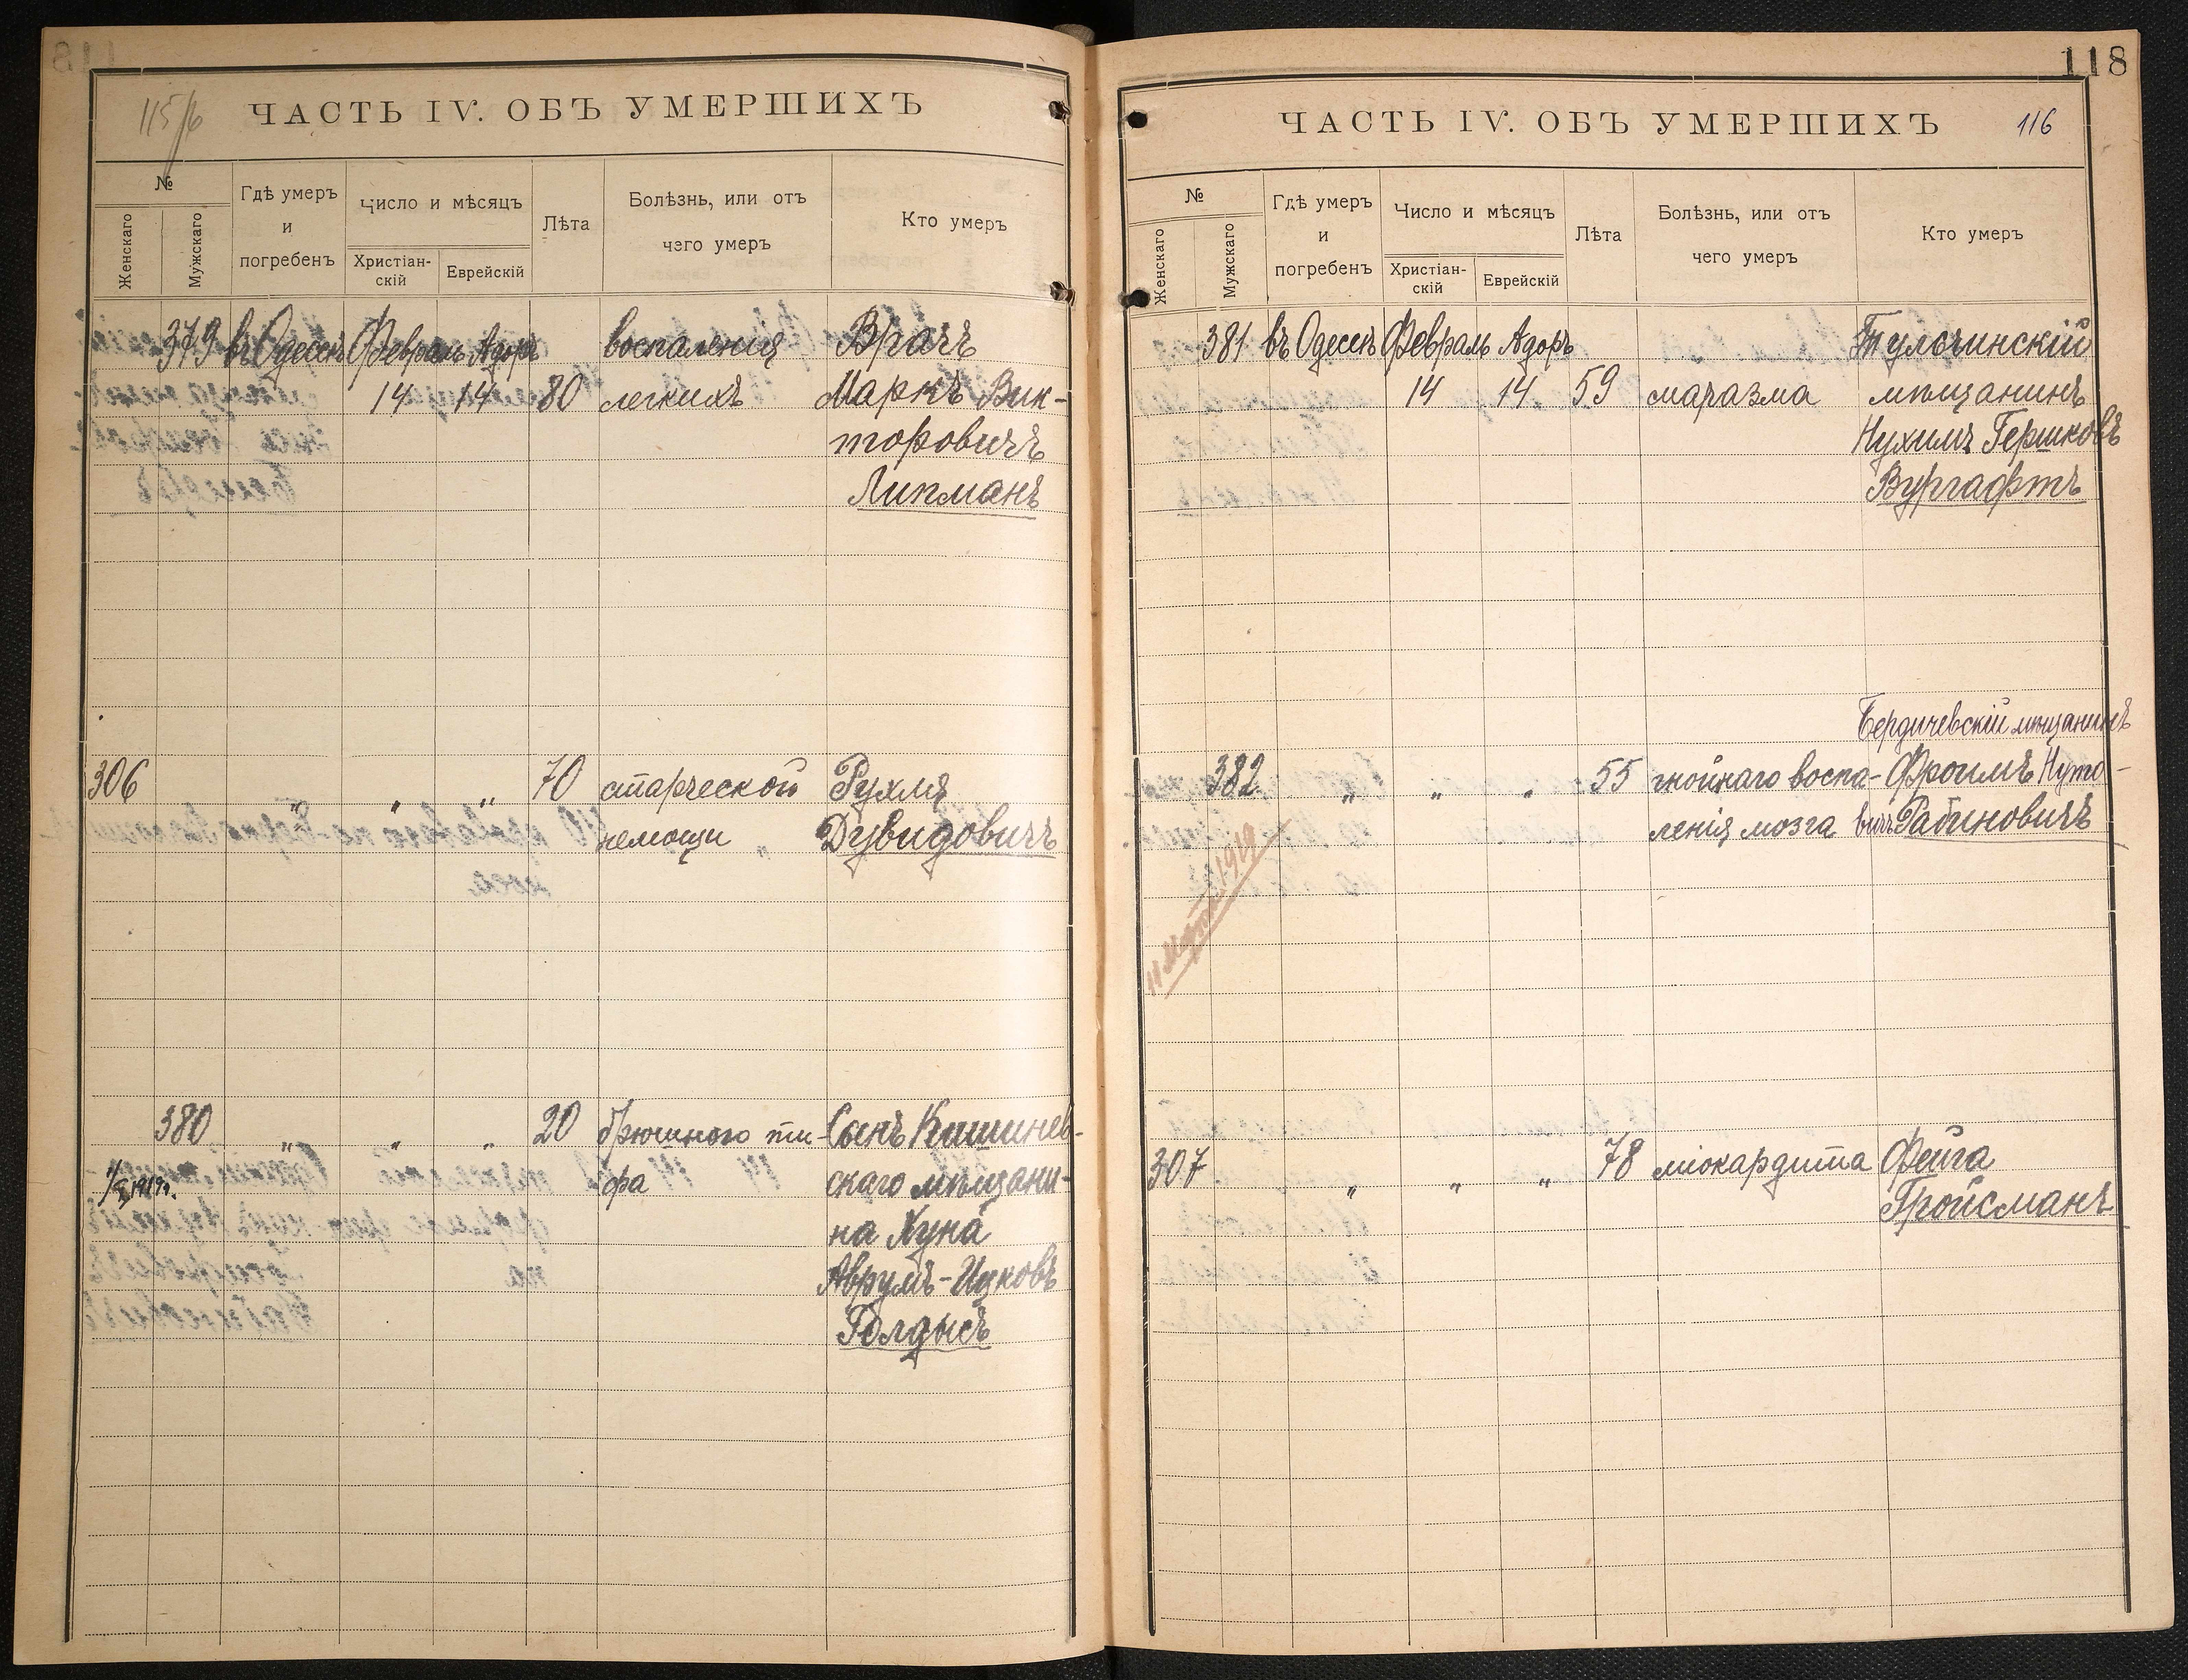 115/6
ЧАСТЬ IV. ОБЪ УМЕРШИХЪ
№
Женскаго
Мужскаго
Гдѣ умеръ
и
погребенъ
Число и мѣсяцъ
Христіан-
скій
Еврейскій
Лѣта
Болѣзнь, или отъ
чего умеръ
Кто умеръ
379 въ Одессѣ Февраль Адоръ воспаленія Врачъ
14 14 80 легкихъ Маркъ Вик-
торовичъ
Липманъ
306 " " " 70 старческой Рухля
немощи Дувидовичъ
380 " " " 20 брюшного ти- Сынъ Кишинев-
1919г. фа скаго мѣщани-
на Хуна
Аврумъ-Ицковъ
Голдысъ
118
ЧАСТЬ IV. ОБЪ УМЕРШИХЪ
116
№
Женскаго
Мужскаго
Гдѣ умеръ
и
погребенъ
Число и мѣсяцъ
Христіан-
скій
Еврейскій
Лѣта
Болѣзнь, или отъ
чего умеръ
Кто умеръ
381 въ Одессѣ Февраль Адоръ Тульчинскій
14 14 59 маразма мѣщанинъ
Нухимъ Гершковъ
Вургафтъ
Бердичевскій мѣщанинъ
382 " " " 55 гнойнаго воспа- Фроимъ Нуто-
ленія мозга вичъ Рабиновичъ
11 Марта 1919
307 " " " 78 міокардита Фейга
Гройсманъ